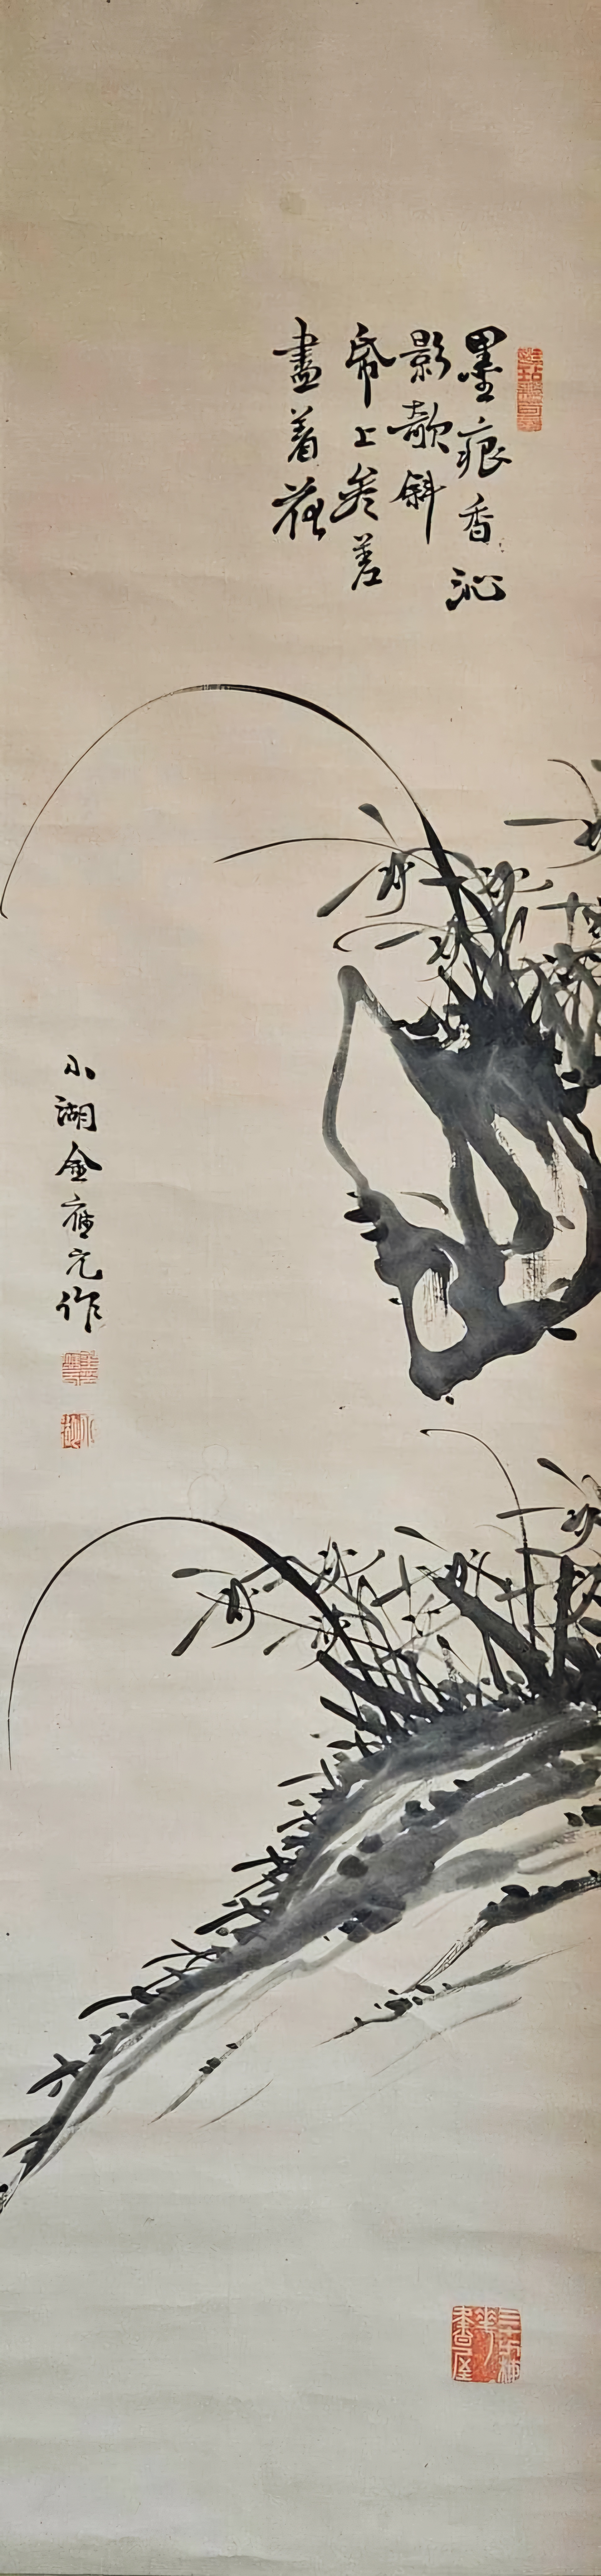 墨痕香沁
影欹斜
帋上參差
盡着花
小湖金應元作